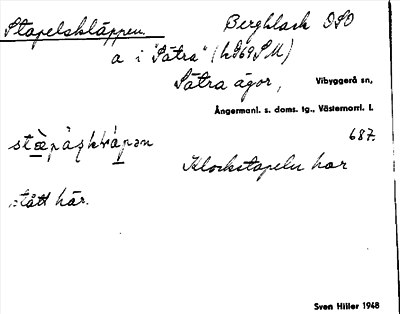 Stapelskläppen. Berghlack DSO
a i "Sätra" (h269SM)
Sätra ägor, Vibyggerå sn,
Ångermanl. s. doms. tg., Västernorrl. l.
687.
Klockstapeln har
stått här.
Sven Hiller 1948